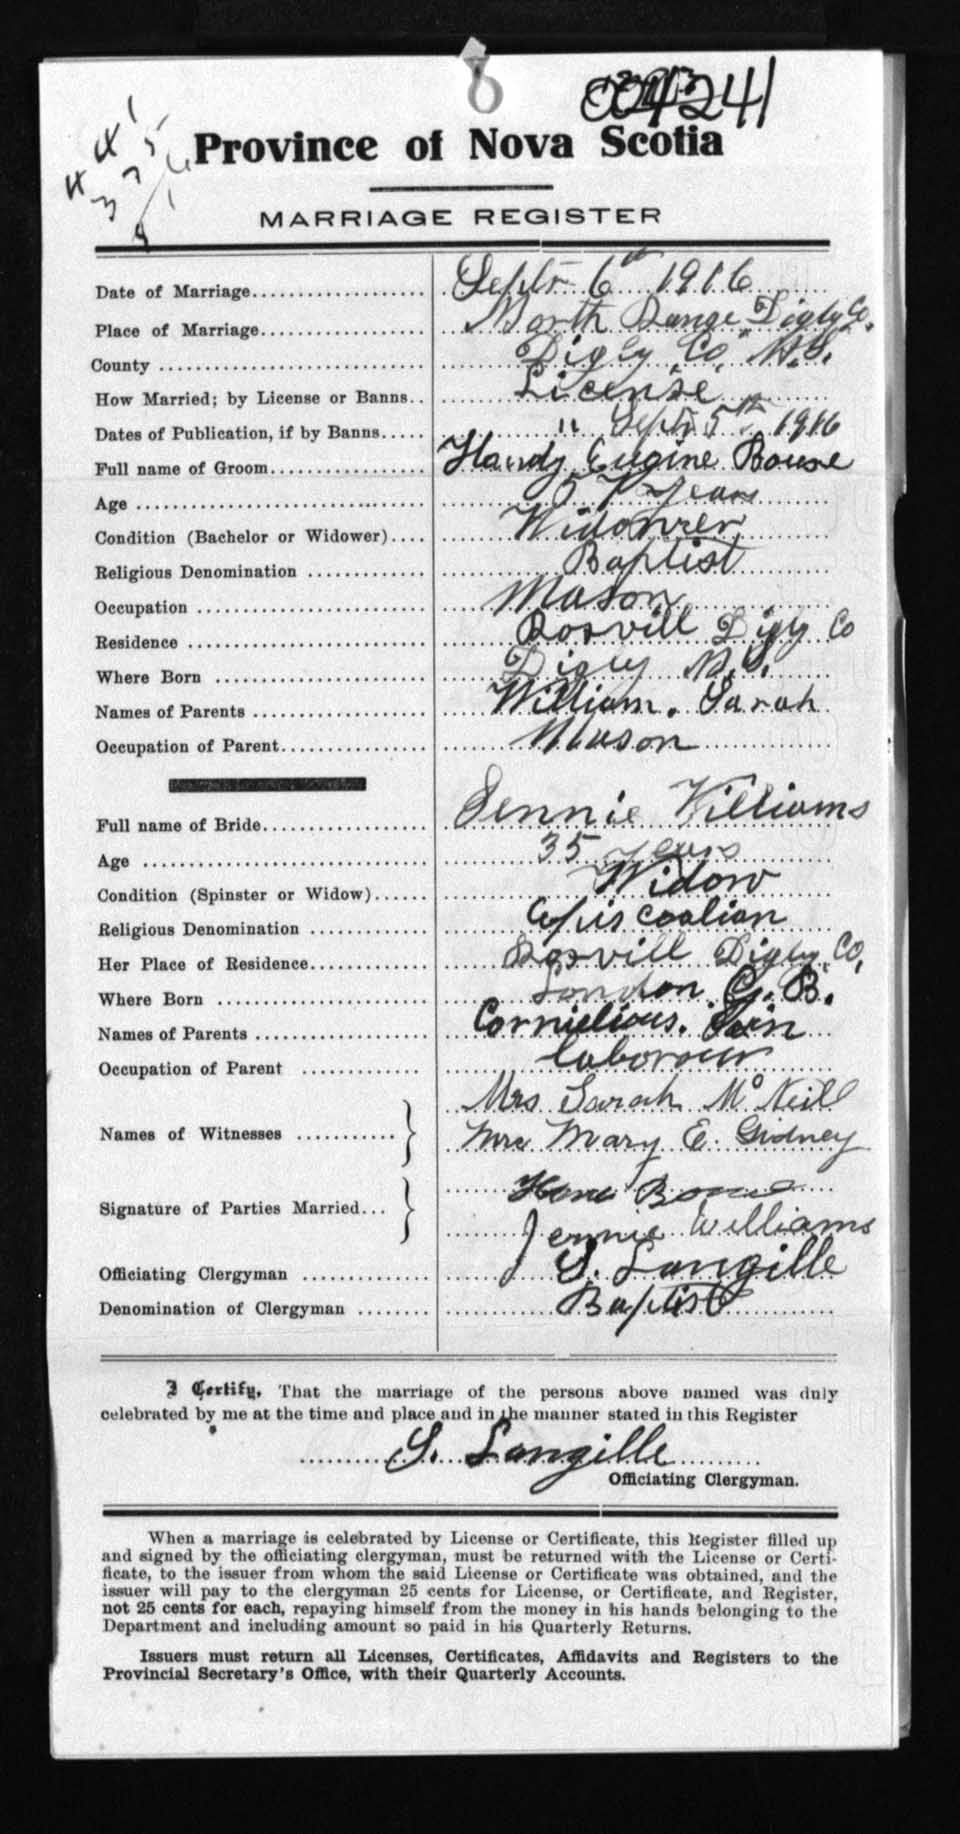 8
Province of Nova Scotia
MARRIAGE REGISTER
Date of Marriage Septr 6th 1916
Place of Marriage North Range Digby Co.
County Digby Co. N.S.
How Married; by License or Banns License
Dates of Publication, if by Banns " Septr 5th 1916
Full name of Groom Handy Eugine Bouse
Age 57 Years
Condition (Bachelor or Widower) Widowrer
Religious Denomination Baptist
Occupation Mason
Residence Rosvill Digby Co
Where Born Digby N.S.
Names of Parents William. Sarah
Occupation of Parent Mason
Full name of Bride Jennie Williams
Age 35 years
Condition (Spinster or Widow) Widow
Religious Denomination Episcoalian
Her Place of Residence Rosvill Digby Co,
Where Born London G. B.
Names of Parents Cornielious.
Occupation of Parent labourour
Names of Witnesses Mrs Sarah McNeill
Mrs Mary E. Gidney
Signature of Parties Married
Jennie Williams
Officiating Clergyman S. Langille
Denomination of Clergyman Baptist
I Certify, That the marriage of the persons above named was duly
celebrated by me at the time and place and in the manner stated in this Register
S. Langille
Officiating Clergyman.
When a marriage is celebrated by License or Certificate, this Register filled up
and signed by the officiating clergyman, must be returned with the License or Certi-
ficate, to the issuer from whom the said License or Certificate was obtained, and the
issuer will pay to the clergyman 25 cents for License, or Certificate, and Register,
not 25 cents for each, repaying himself from the money in his hands belonging to the
Department and including amount so paid in his Quarterly Returns.
Issuers must return all Licenses, Certificates, Affidavits and Registers to the
Provincial Secretary's Office, with their Quarterly Accounts.